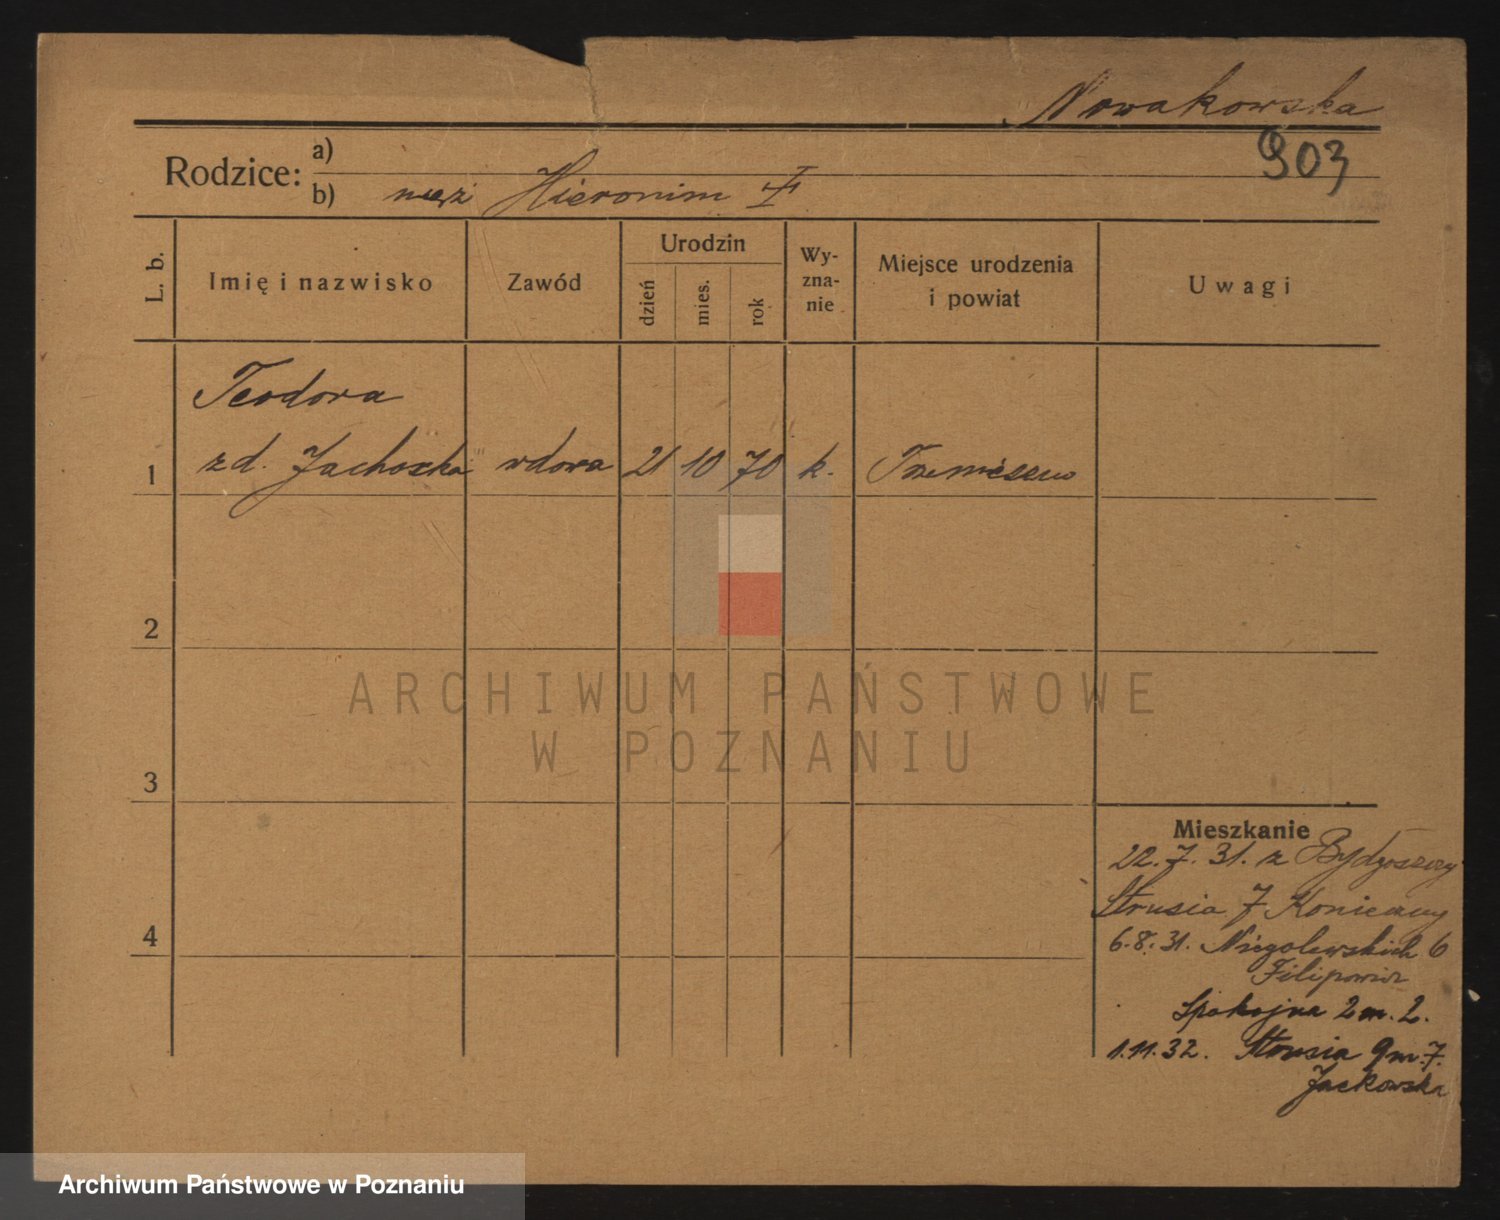 Nowakowska
903
Rodzice:
a)
b) mąż Hieronim
L. b.
Imię i nazwisko
Zawód
Urodzin
dzień
mies.
rok
Wy-
zna-
nie
Miejsce urodzenia
i powiat
Uwagi
Teodora
1 z d. wdowa 21 10 70 k. Trzemeszno
2
3
4
Mieszkanie
22.7.31. z Bydgoszczy
Strusia 7
6.8.31. Niegolewskich 6
Filipowicz
Spokojna 2 m. 2.
1.11.32. Strusia 9 m. 7.
Jackowska
ARCHIWUM PAŃSTWOWE
W POZNANIU
Archiwum Państwowe w Poznaniu